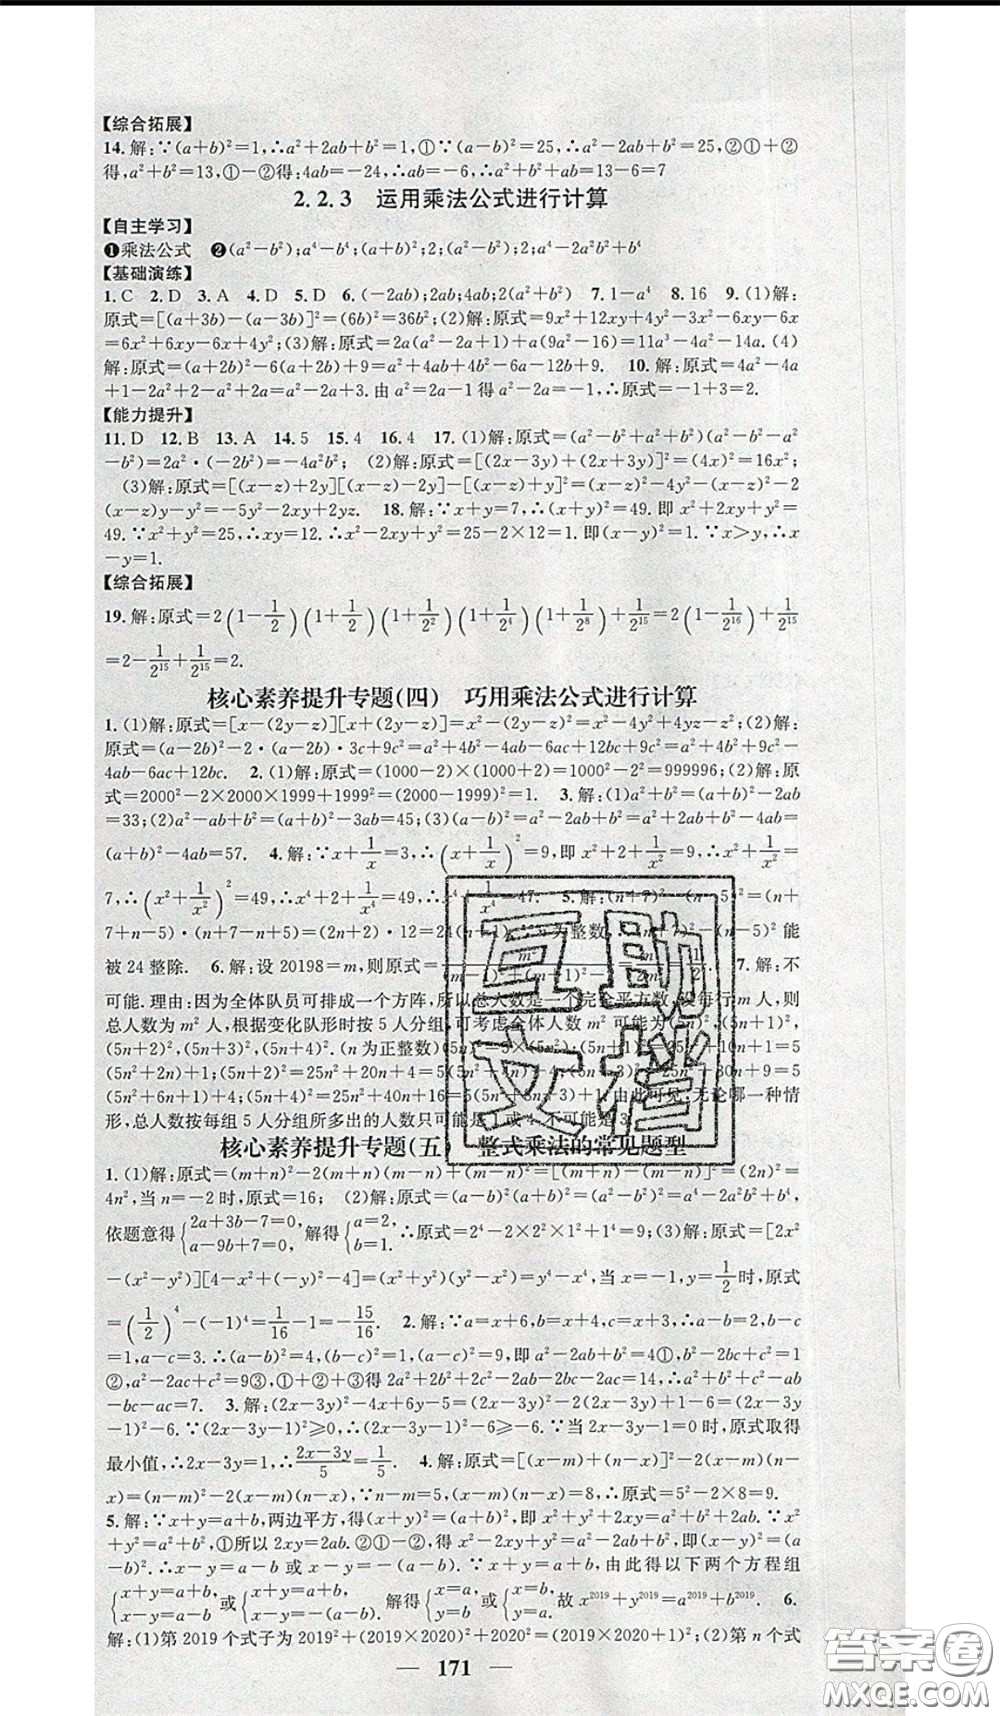 【综合拓展】
14.解:∵(a+b)²=1,∴a²+2ab+b²=1,①∵(a-b)²=25,∴a²-2ab+b²=25,②①+②
得,a²+b²=13,①-②得:4ab=-24,∴ab=-6,∴a²+b²+ab=13-6=7
2.2.3 运用乘法公式进行计算
【自主学习】
❶乘法公式 ❷(a²-b²);a⁴-b⁴;(a²+b²);2;(a²-b²);2;a⁴-2a²b²+b⁴
【基础演练】
1.C 2.D 3.A 4.D 5.D 6.(-2ab);2ab;4ab;2(a²+b²) 7.1-a⁴ 8.16 9.(1)解:
原式=[(a+3b)-(a-3b)]²=(6b)²=36b²;(2)解:原式=9x²+12xy+4y²-3x²-6xy-6x
=6x²+12xy-6xy-6x+4y²;(3)解:原式=2a(a²-2a+1)+a(9a²-16)=11a³-4a²-14a.(4)
解:原式=(a+2b)²-6(a+2b)+9=a²+4ab+4b²-6a-12b+9. 10.解:原式=4a²-4a
+1-2a²+2+a²-2+a²=2a-a²+3.由a²=2a-1得a²-2a=-1,∴原式=-1+3=2.
【能力提升】
11.D 12.B 13.A 14.5 15.4 16.4 17.(1)解:原式=(a²-b²+a²+b²)(a²-b²-a²
-b²)=2a²·(-2b²)=-4a²b²; (2)解:原式=[(2x-3y)+(2x+3y)]²=(4x)²=16x²;
(3)解:原式=[(x-z)+2y][(x-z)-2y]-[(x-z)+y]²=(x-z)²-4y²-(x-z)²-2
(x-z)y-y²=-5y²-2xy+2yz. 18.解:∵x+y=7,∴(x+y)²=49.即x²+2xy+y²=
49.∵x²+y²=25,∴xy=12.∴x²-2xy+y²=25-2×12=1.即(x-y)²=1.∵x>y,∴x
-y=1.
【综合拓展】
19.解:原式=2(1-1/2)(1+1/2)(1+1/2²)(1+1/2⁴)(1+1/2⁸)+1/2¹⁵=2(1-1/2¹⁶)+1/2¹⁵
=2-1/2¹⁵+1/2¹⁵=2.
核心素养提升专题(四) 巧用乘法公式进行计算
1.(1)解:原式=[x-(2y-z)][x+(2y-z)]=x²-(2y-z)²=x²-4y²+4yz-z²;(2)解:
原式=(a-2b)²-2·(a-2b)·3c+9c²=a²+4b²-4ab-6ac+12bc+9c²=a²+4b²+9c²-
4ab-6ac+12bc. 2.(1)解:原式=(1000-2)×(1000+2)=1000²-2²=999996;(2)解:原
式=2000²-2×2000×1999+1999²=(2000-1999)²=1. 3.解:(1)a²+b²=(a+b)²-2ab
=33;(2)a²-ab+b²=(a+b)²-3ab=45;(3)(a-b)²=a²-2ab+b²=a²+2ab+b²-4ab=
(a+b)²-4ab=57. 4.解:∵x+1/x=3,∴(x+1/x)²=9,即x²+2+1/x²=9,∴x²+1/x²=
7,∴(x²+1/x²)²=49,∴x⁴+2+1/x⁴=49,∴x⁴+1/x⁴=47. 5.解:(n+7)²-(n-5)²=(n+
7+n-5)·(n+7-n+5)=(2n+2)·12=24(n+1).∵n为整数,∴(n+7)²-(n-5)²能
被24整除. 6.解:设20198=m,则原式=m²/((m-1)²+(m+1)²-2)=m²/2m²=1/2. 7.解:不
可能.理由:因为全体队员可排成一个方阵,所以总人数是一个完全平方数,设每行m人,则
总人数为m²人,根据变化队形时按5人分组,可考虑全体人数m²可能为(5n)²,(5n+1)²,
(5n+2)²,(5n+3)²,(5n+4)².(n为正整数)(5n)²=5×5n²;(5n+1)²=25n²+10n+1=5
(5n²+2n)+1;(5n+2)²=25n²+20n+4=5(5n²+4n)+4;(5n+3)²=25n²+30n+9=5
(5n²+6n+1)+4;(5n+4)²=25n²+40n+16=5(5n²+8n+3)+1.由此可见:无论哪一种情
形,总人数按每组5人分组所多出的人数只可能是1或4,不可能是3.
核心素养提升专题(五) 整式乘法的常见题型
1.(1)解:原式=(m+n)²-2(m+n)(m-n)+(m-n)²=[(m+n)-(m-n)]²=(2n)²=
4n²,当n=-2时,原式=16; (2)解:原式=(a-b)²(a+b)²=(a²-b²)²=a⁴-2a²b²+b⁴,
依题意得{2a+3b-7=0,a-9b+7=0,解得{a=2,b=1.∴原式=2⁴-2×2²×1²+1⁴=9;(3)解:原式=[2x²
-(x²-y²)][4-x²+(x²+y²)-4]=(x²+y²)(-x²+y²)=y⁴-x⁴,当x=-1,y=1/2时,原式
=(1/2)⁴-(-1)⁴=1/16-1=-15/16. 2.解:∵a=x+6,b=x+4,c=x+3,∴a-b=2,b-c
=1,a-c=3.∴(a-b)²=4,(b-c)²=1,(a-c)²=9,即a²-2ab+b²=4①,b²-2bc+c²=1
②,a²-2ac+c²=9③,①+②+③得2a²+2b²+2c²-2ab-2bc-2ac=14.∴a²+b²+c²-ab
-bc-ac=7. 3.解:(2x-3y)²-4x+6y-5=(2x-3y)²-2(2x-3y)+1-6=(2x-3y
-1)²-6.∵(2x-3y-1)²≥0,∴(2x-3y-1)²-6≥-6.∵当2x-3y-1=0时,原式取得
最小值,∴2x-3y=1,∴(2x-3y)/5=1/5. 4.解:原式=[(x-m)+(n-x)]²-2(x-m)(n
-x)=(n-m)²-2(x-m)(n-x),∵n-m=5,(x-m)(n-x)=8,∴原式=5²-2×8=9.
5.解:∵x+y=a+b,两边平方,得(x+y)²=(a+b)²,即x²+y²+2xy=a²+b²+2ab.∵x²
+y²=a²+b²,①所以2xy=2ab.②①-②,得x²+y²-2xy=a²+b²-2ab,即(x-y)²=(a-
b)².∴x-y=a-b或x-y=-(a-b).∵x+y=a+b,由此得以下两个方程组
{x+y=a+b,x-y=a-b或{x+y=a+b,x-y=-(a-b).解得{x=a,y=b或{x=b,y=a.故x²⁰¹⁹+y²⁰¹⁹=a²⁰¹⁹+b²⁰¹⁹. 6.
解:(1)第2019个式子为2019²+(2019×2020)²+2020²=(2019×2020+1)²;(2)第n个式
— 171 —
互助
文档
答案圈
MXQE.COM